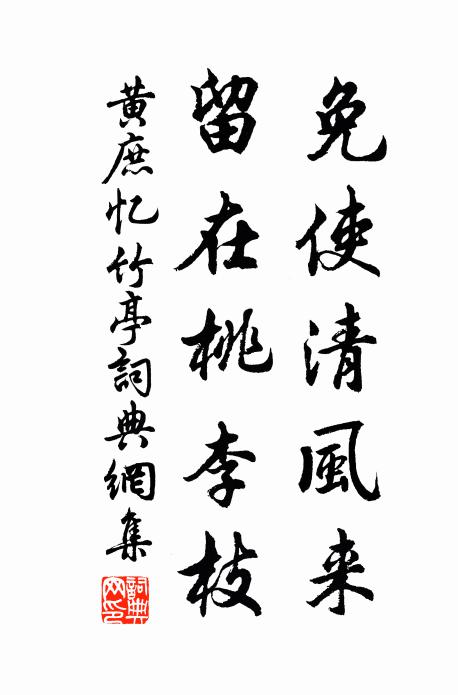 免使清風来
留在桃李枝
黄庶忆竹亭詞典網集
詞典网印